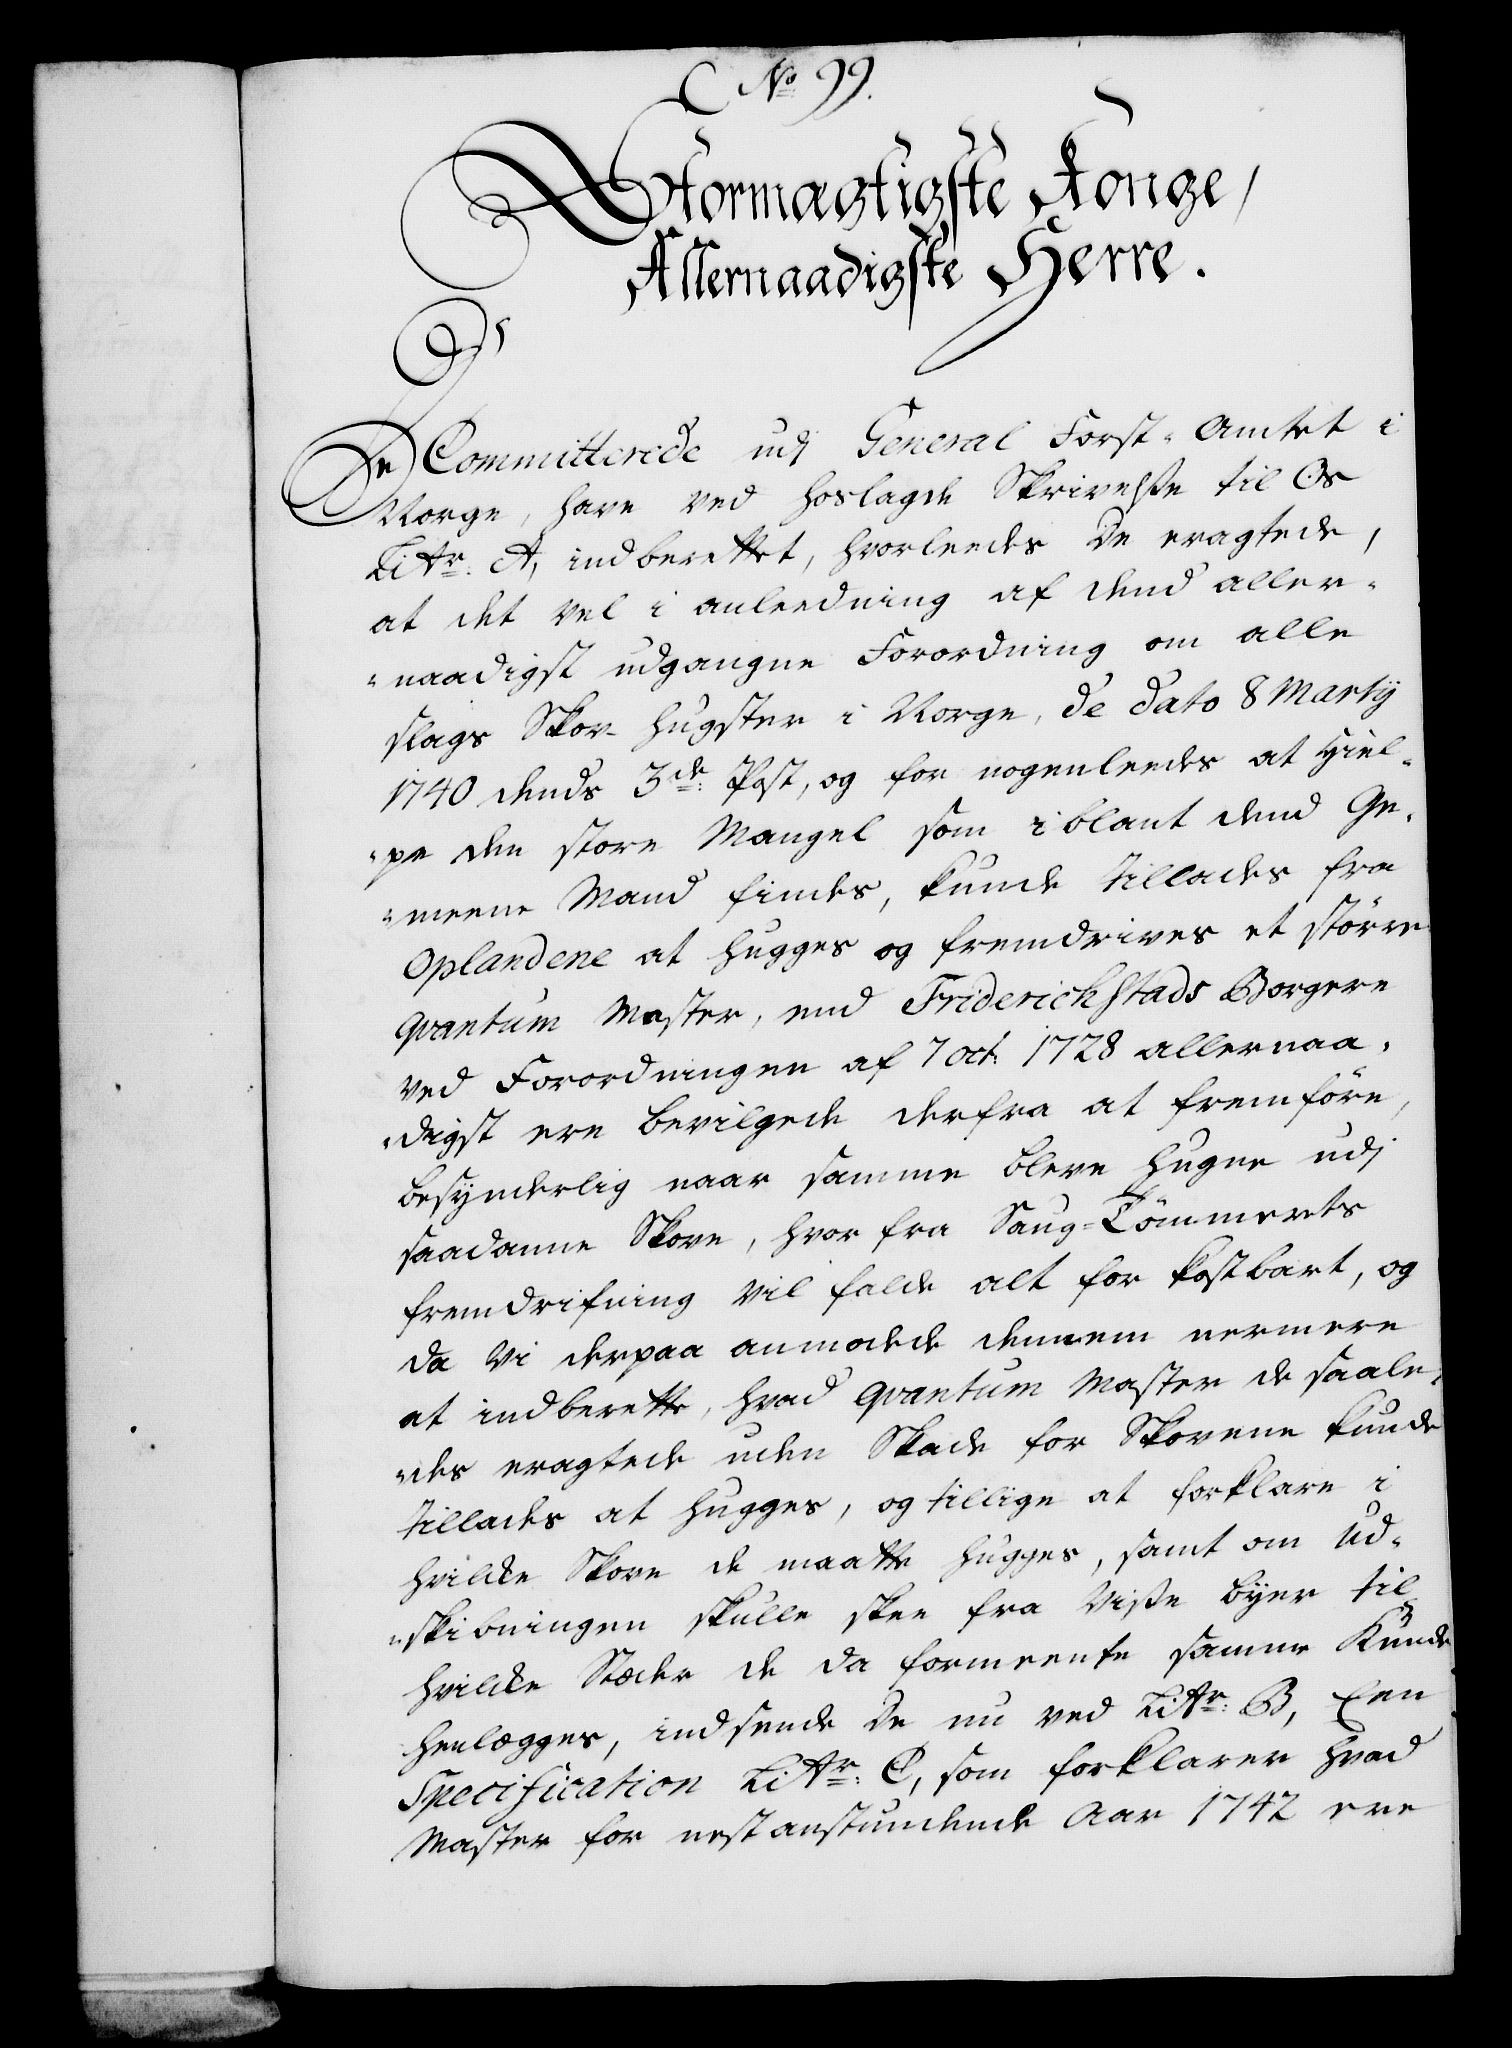 No 99.
Stormægtigste Konge,
Allernaadigste Herre.
De Committerede udj General Forst-Amtet i
Norge, have ved hoslagde Skrivelsse til Os
Littr. A, indberettet, hvorleedes De eragtede,
at det vel i anleedning af dend aller-
naadigst udgangne Forordning om alle
slags Skov-hugster i Norge, de dato 8 Martij
1740 dends 3de Post, og for nogenleedes at Hiel-
pe den store Mangel som iblant dend Ge-
meene Mand findes, kunde tillades fra
Oplandene at hugges og fremdrives et större
Qvantum Master, end Friderichstads Borgere
ved Forordningen af 7 oct. 1728 allernaa-
digst ere bevilgede derfra at fremföre,
besynderlig naar samme bleve hugne udj
saadanne Skove, hvor fra Saug-Tömmerets
fremdrifning vil falde alt for kostbart, og
da Vi derpaa anmodede dennem nermere
at indberette, hvad Qvantum Master de saale-
des eragtede uden Skade for Skovene kunde
tillades at hugges, og tillige at forklare i
hvilcke Skove de maatte hugges, samt om Ud-
skibningen skulle skee fra Visse byer til
hvilcke Stæder de da formeente samme Kunde
henlægges, indsende De nu ved Littr. B, Een
Specification Littr. C, som forklarer hvad
Master for nestanstundende Aar 1742 ere